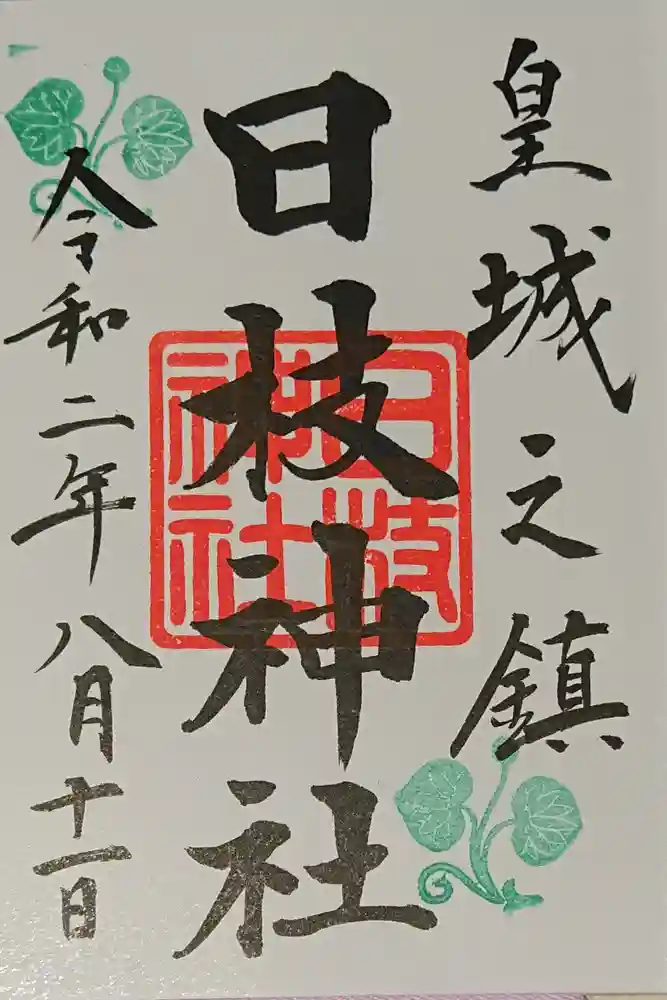 皇城之鎮
日枝神社
日枝神社
令和二年八月十一日